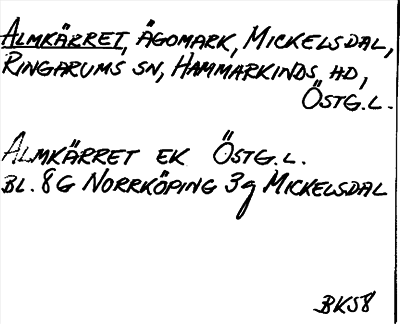 ALMKÄRRET, ÄGOMARK, MICKELSDAL,
RINGARUMS SN, HAMMARKINDS HD,
ÖSTG.L.
ALMKÄRRET EK ÖSTG.L.
BL. 8G NORRKÖPING 3g MICKELSDAL
BK58